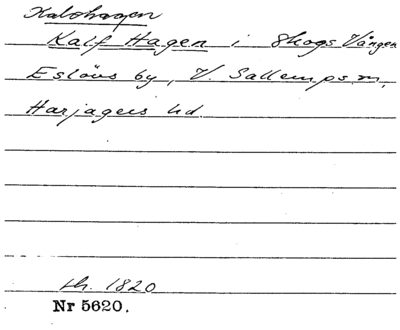 Kalvhagen
Kalf Hagen i Skogs Vången
Eslövs by, V. Sallerups sn,
Harjagers hd.
sh. 1820
Nr 5620.